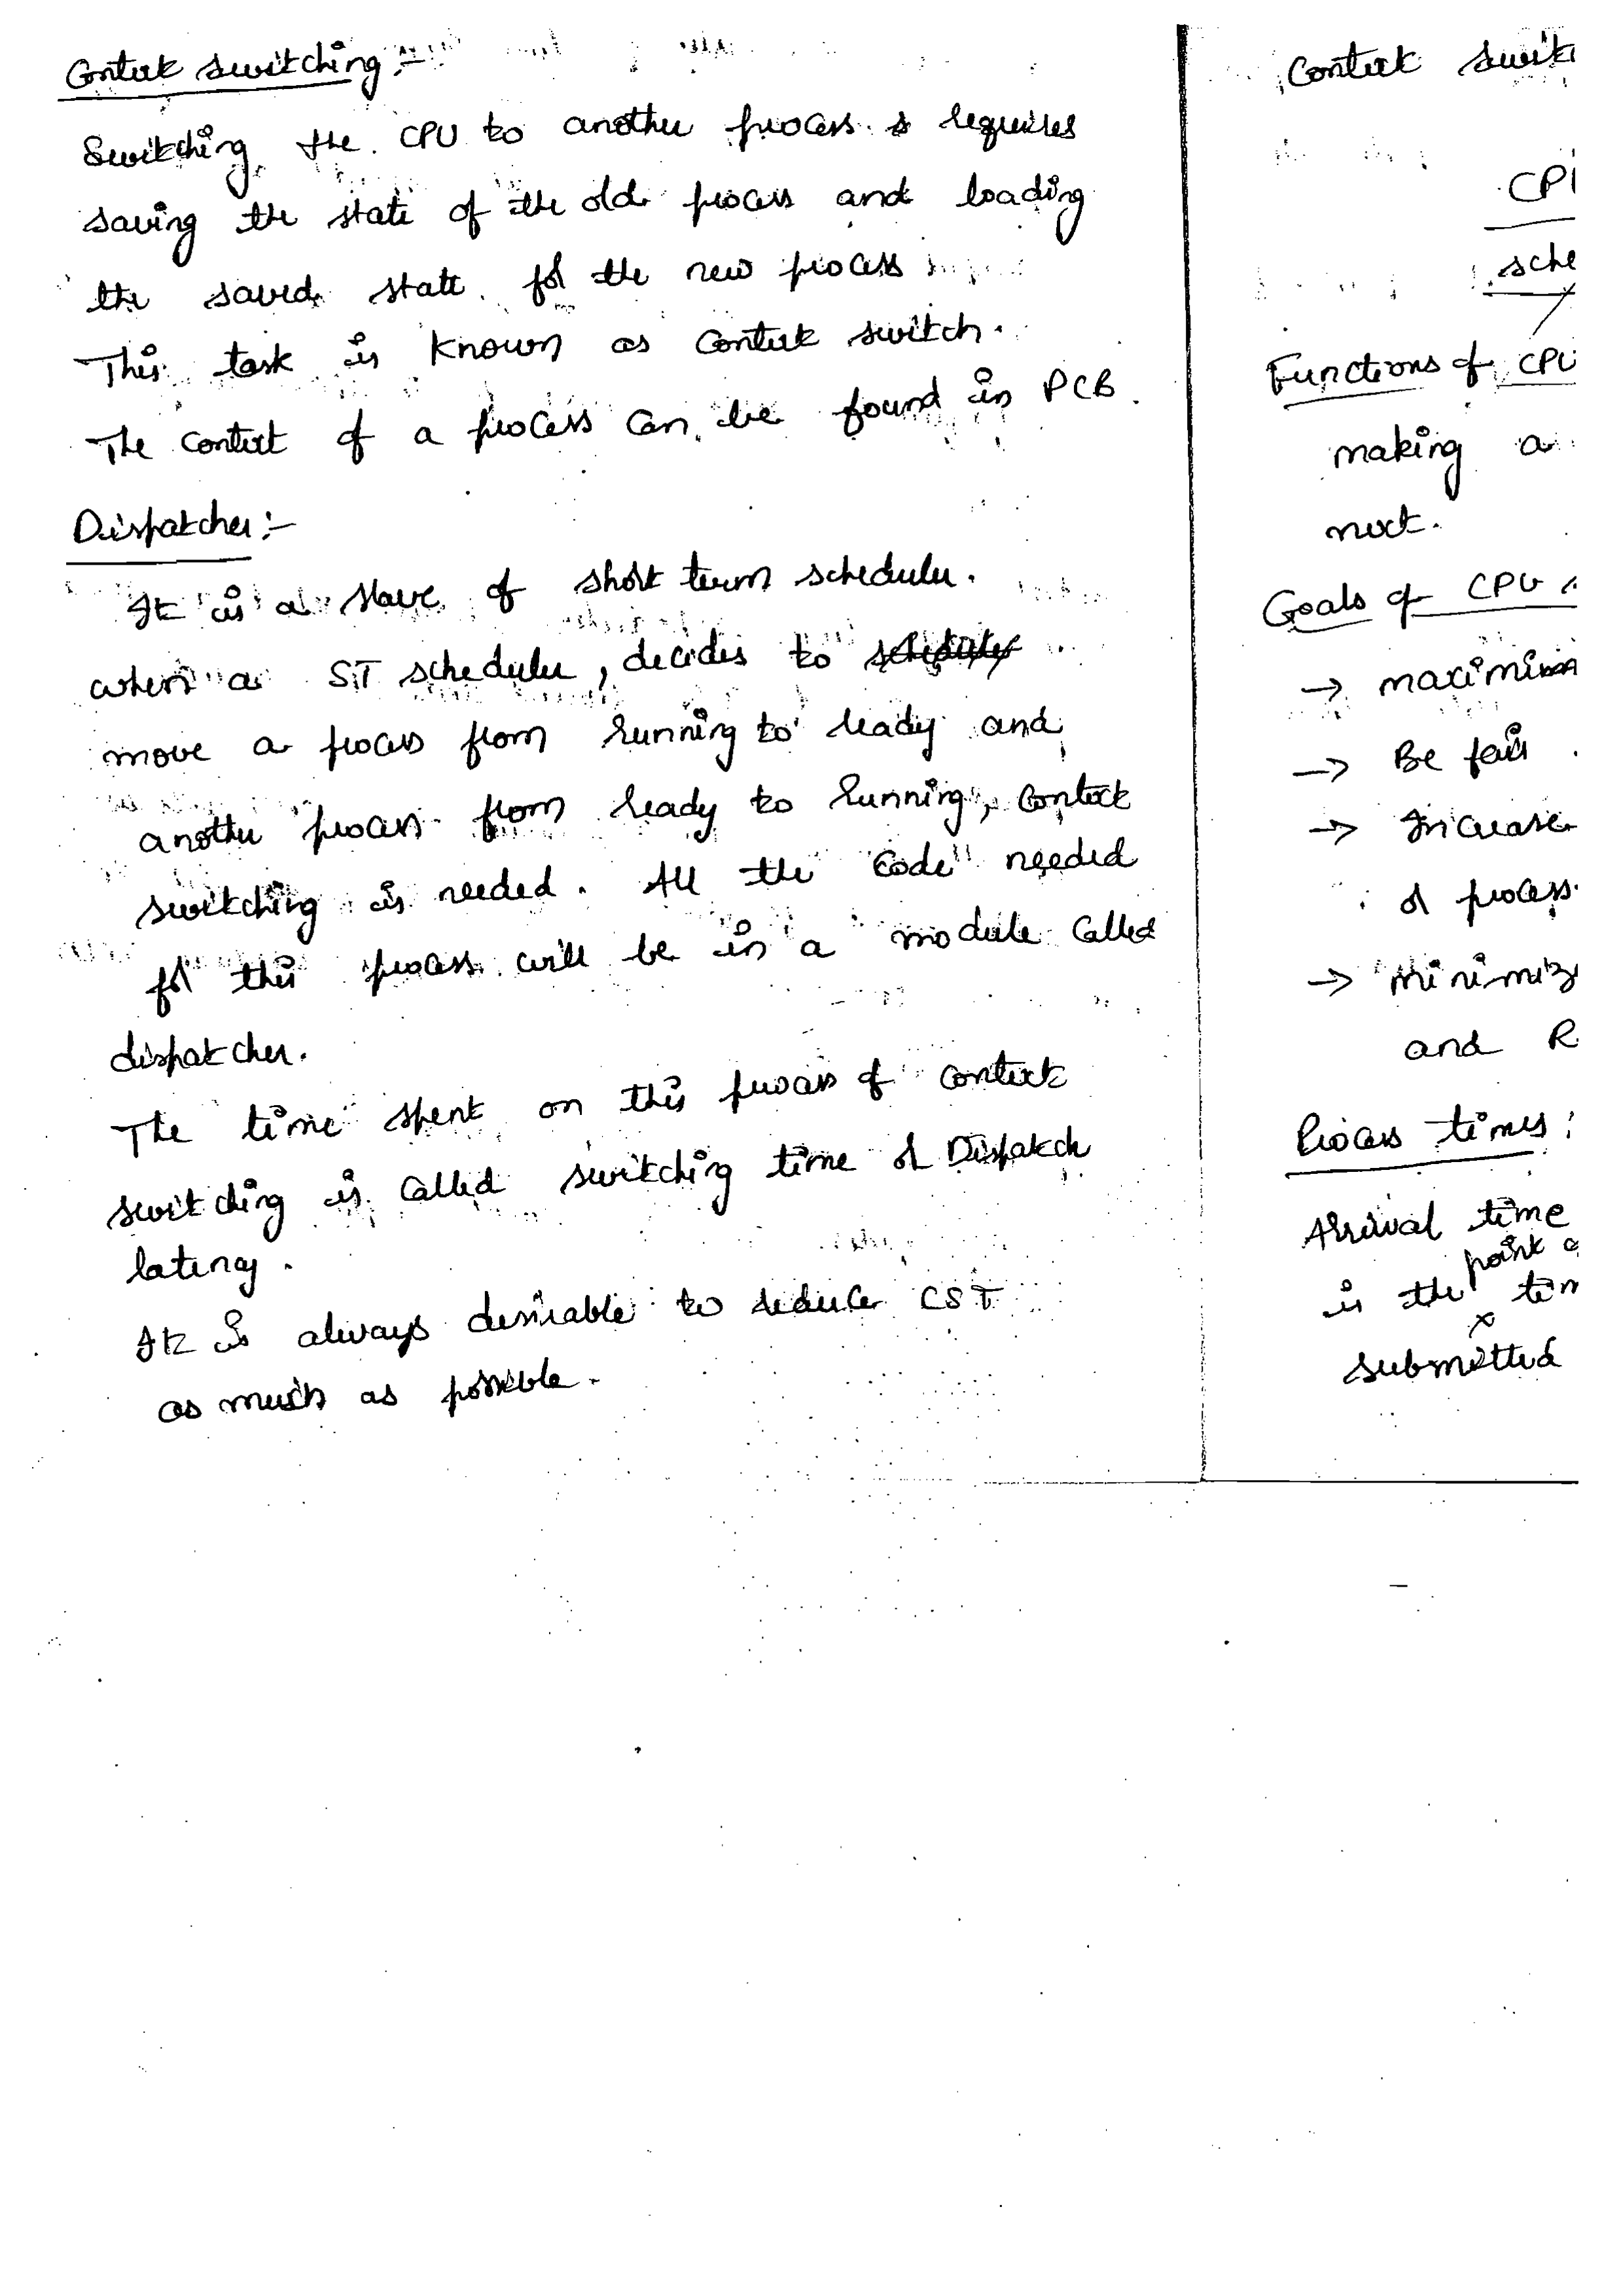 Context switching :-
Switching the CPU to another process requires
saving the state of the old process and loading
the saved state for the new process
This task is known as context switch.
The context of a process can be found in PCB.
Dispatcher :-
It is a slave of short term scheduler.
when a ST scheduler, decides to
move a process from running to ready and
another process from ready to running, context
switching is needed. All the code needed
for this process will be in a module called
dispatcher.
The time spent on this process of context
switching is called switching time or Dispatch
latency.
It is always desirable to reduce CST
as much as possible.
Context
Functions of CPU
making a
next.
Goals of CPU
→
→ Be fair
→ Increase
or process
→
and R
Process times :
Arrival time
point
is the
submitted